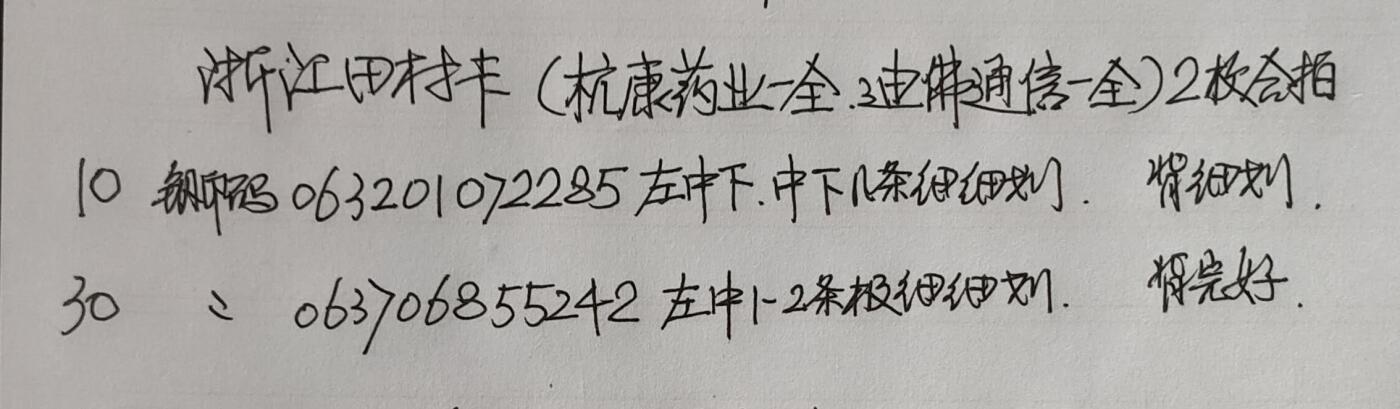 浙江田村卡（杭康药业一全.迪佛通信一全）2枚合拍
10 钢印码063201072285左中下.中下几条细细划. 背细划.
30 〃 063706855242左中1-2条极细细划. 背完好.